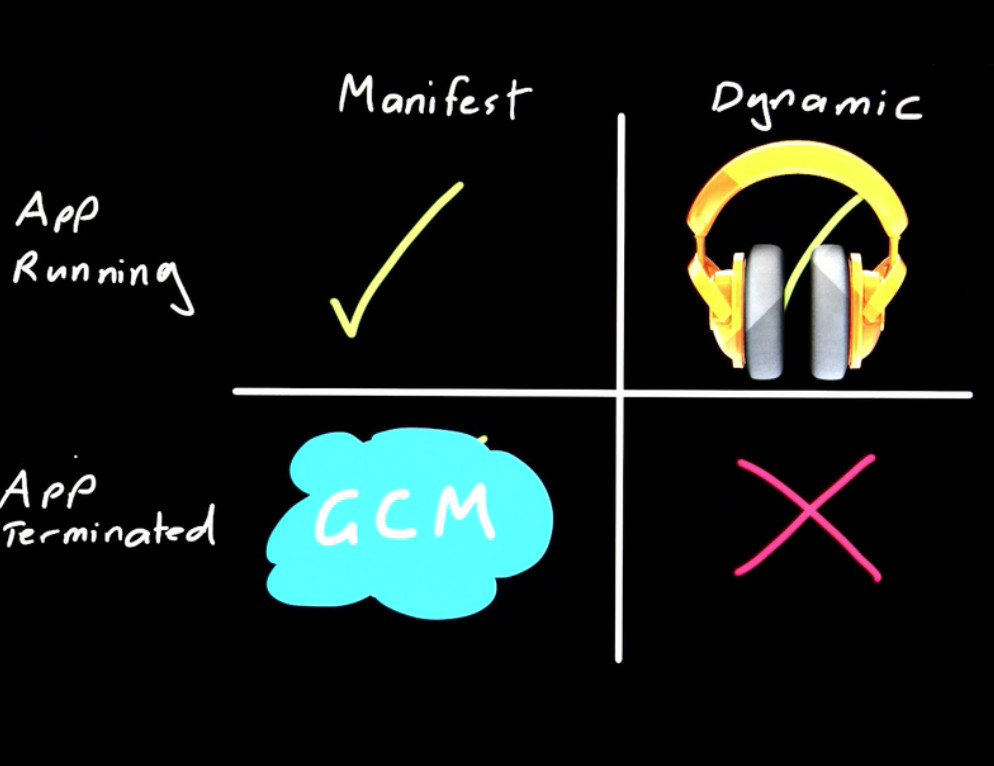 Manifest
Dynamic
App
Running
App
Terminated
GCM